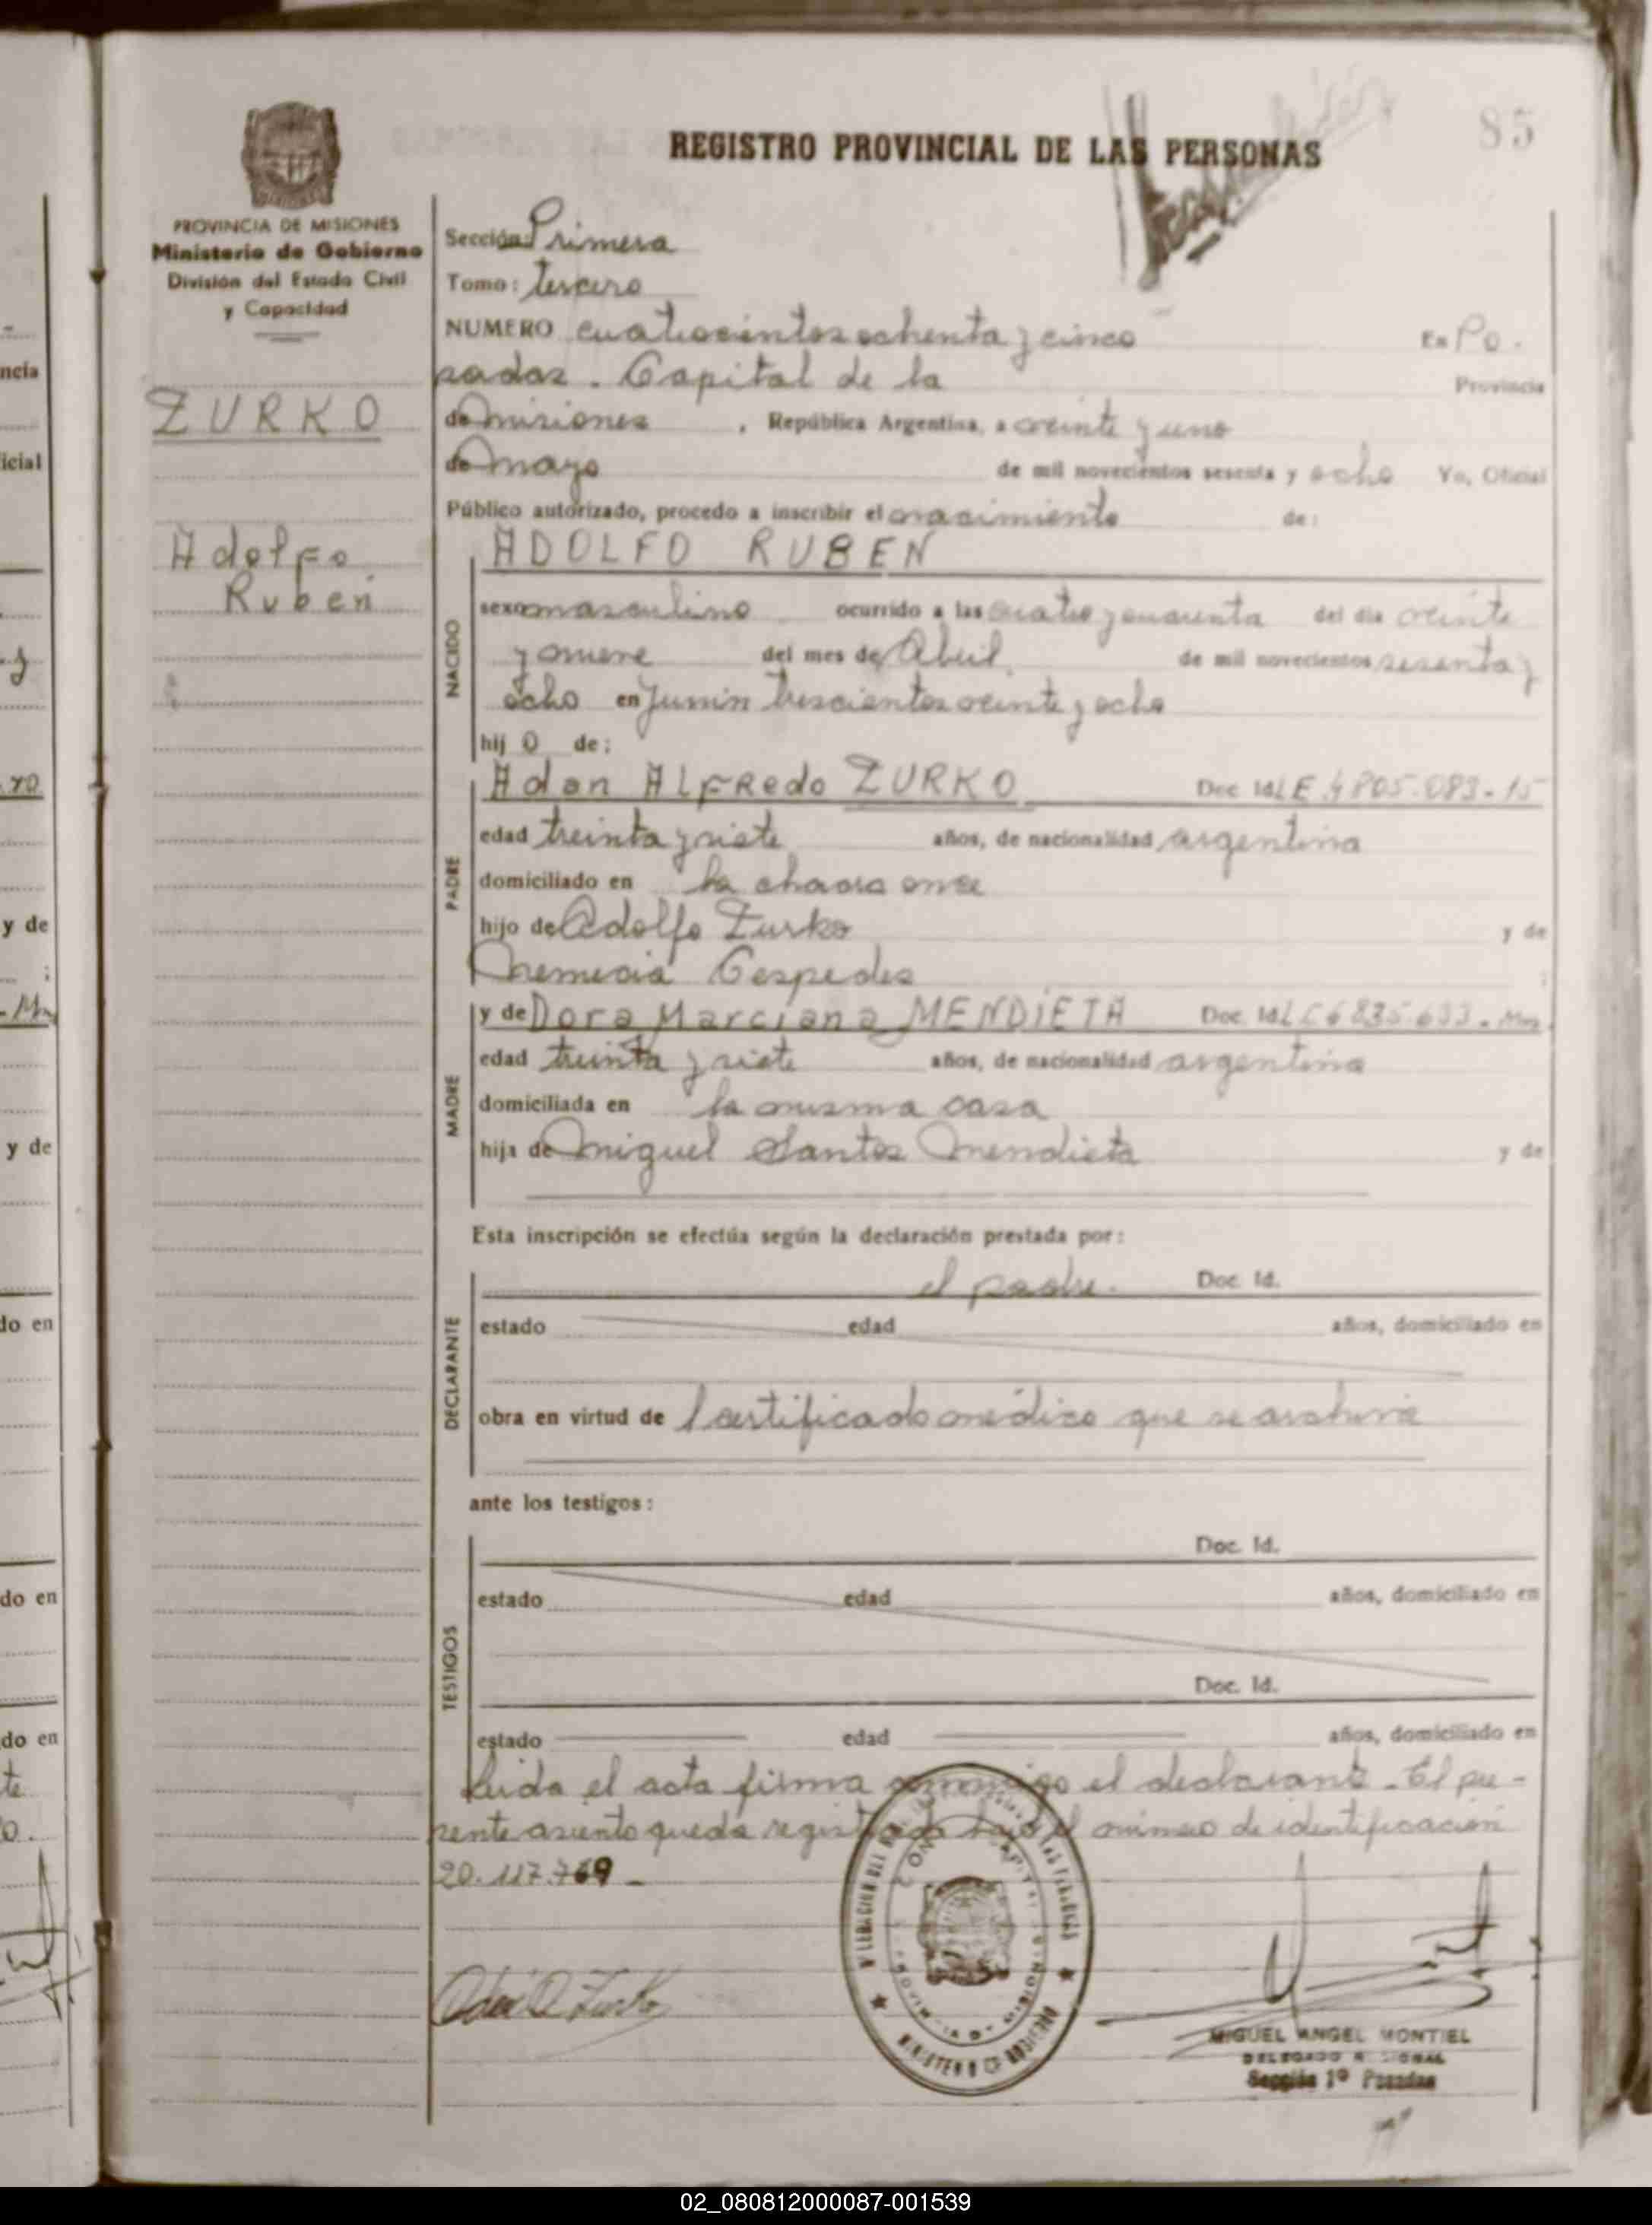 85
REGISTRO PROVINCIAL DE LAS PERSONAS
PROVINCIA DE MISIONES
Ministerio de Gobierno
División del Estado Civil
y Capacidad
ZURKO
Adolfo
Ruben
Sección: Primera
Tomo: tercero
NUMERO cuatrocientos ochenta y cinco En Po-
sadas. Capital de la Provincia
de Misiones, República Argentina, a veinte y uno
de Mayo de mil novecientos sesenta y ocho Yo, Oficial
Público autorizado, procedo a inscribir el nacimiento de:
NACIDO
ADOLFO RUBEN
sexo masculino ocurrido a las cuatro y cuarenta del día veinte
y nueve del mes de Abril de mil novecientos sesenta y
ocho en Junin trescientos veinte y ocho
hij o de:
PADRE
Adan Alfredo ZURKO Doc. Id. L E 4805.083-15
edad treinta y siete años, de nacionalidad argentina
domiciliado en la chacra once
hijo de Adolfo Zurko y de
Nemecia Cespedes ;
MADRE
y de Dora Marciana MENDIETA Doc. Id. L C 6835.633-
edad treinta y siete años, de nacionalidad argentina
domiciliada en la misma casa
hija de Miguel Santos Mendieta y de
Esta inscripción se efectúa según la declaración prestada por:
DECLARANTE
el padre. Doc. Id.
estado edad años, domiciliado en
obra en virtud de Certificado médico que se archiva
ante los testigos:
TESTIGOS
Doc. Id.
estado edad años, domiciliado en
Doc. Id.
estado edad años, domiciliado en
Leida el acta firma conmigo el declarante. El pre-
sente asiento queda registrado bajo el número de identificación
20.117.769
MINISTERIO DE GOBIERNO
MIGUEL ANGEL MONTIEL
DELEGADO REGIONAL
Sección 1º Posadas
02_080812000087-001539